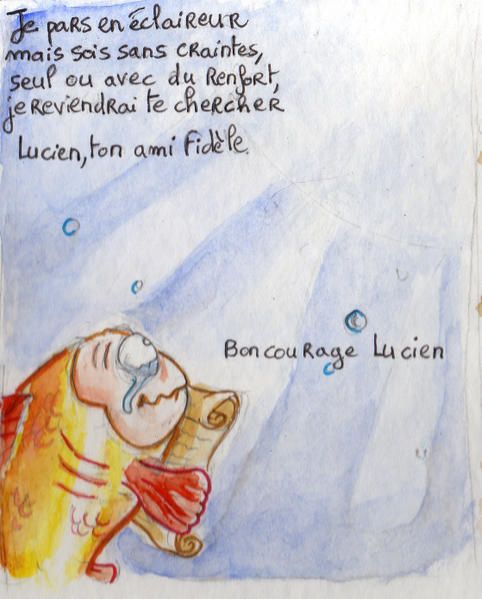 Je pars en éclaireur
mais sois sans craintes,
seul ou avec du renfort,
je reviendrai te chercher
Lucien, ton ami fidèle.
Bon courage Lucien